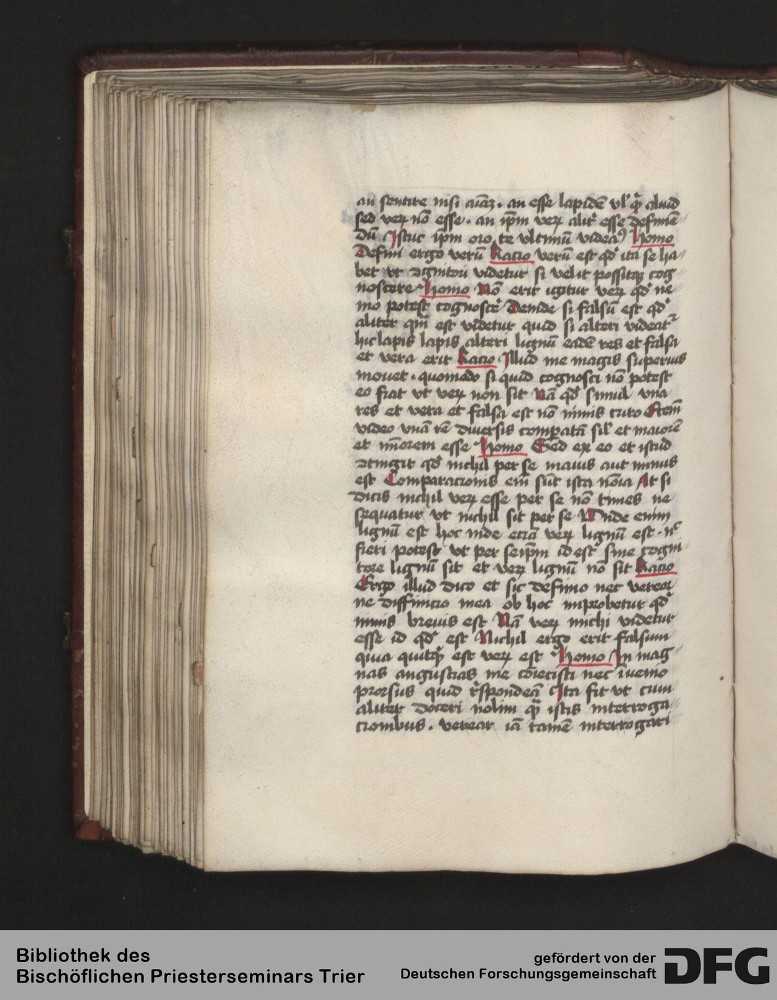 an sentire nisi aĩaz . an esse lapidē vl' q̃ aliud
sed veȝ nō esse . an ip̃m veȝ alit' esse definiē
dū Istuc ip̃m oro te vltimū videaꝰ Homo
Defini ergo verū Racio verū est qd' ita se ha
bet vt cognitori videtur si velit possitqȝ cog
noscere Homo Nō erit igitur veȝ qd' ne
mo potest cognosce' Deinde si falsū est qd'
aliter qm̃ est videtur quid si alteri videat'
hic lapis lapis alteri lignū eadē res et falsa
et vera erit Racio Illud me magis superius
mouet . quomodo si quid cognosci nō potest
eo fiat vt veȝ non sit Nā qd' simul vna
res et vera et falsa est nō nimis curo Etem̃
video vnā rē diuersis compatā sil' et maiorē
et mīorem esse Homo Sed ex eo et istud
atingit qd' nichil per se maius aut minus
est Comparacionis em̃ sūt ista nōia At si
dicis nichil veȝ esse per se nō times ne
sequatur vt nichil sit per se Unde enim
lignū est hoc inde eciā veȝ lignū est . n'
fieri potest vt per seip̃m id est sine cogni
tore lignū sit et veȝ lignū nō sit Racio
Ergo illud dico et sic definio nec vereor
ne diffinicio mea ob hoc improbetur qd'
nimis breuis est Nā veȝ michi videtur
esse id qd' est Nichil ergo erit falsum
quia quitqȝ est veȝ est Homo In mag
nas angustias me cōiecisti nec īuenio
prorsus quid r̃spondeā Ita fit vt cum
aliter doceri nolim q̃ istis interroga
cionibus . verear iā tamē interrogari
Bibliothek des
Bischöflichen Priesterseminars Trier
gefördert von der
Deutschen Forschungsgemeinschaft
DFG